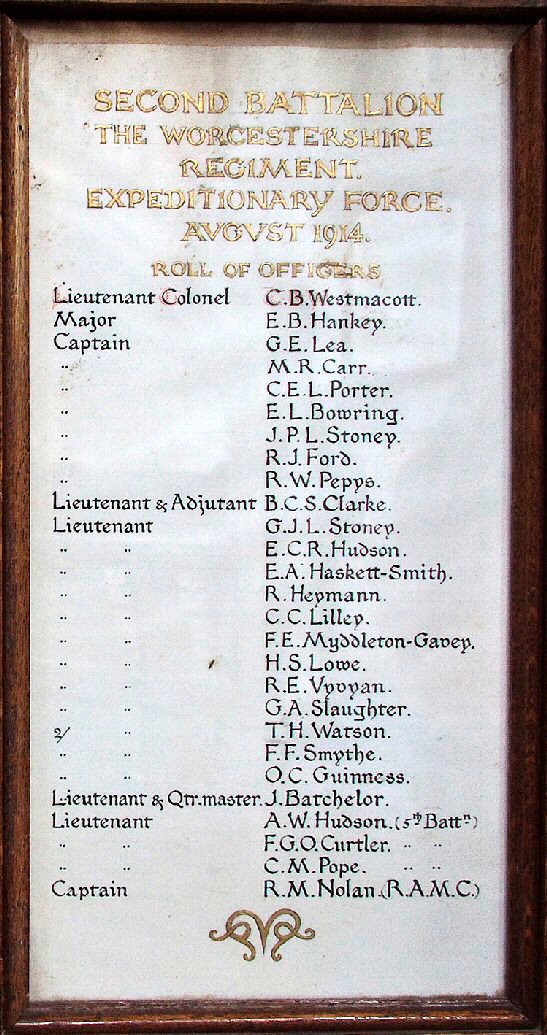 SECOND BATTALION
THE WORCESTERSHIRE
REGIMENT.
EXPEDITIONARY FORCE.
AVGVST 1914.
ROLL OF OFFICERS
Lieutenant Colonel C.B.Westmacott.
Major E.B.Hankey.
Captain G.E.Lea.
" M.R.Carr.
" C.E.L.Porter.
" E.L.Bowring.
" J.P.L.Stoney.
" R.J.Ford.
" R.W.Pepys.
Lieutenant & Adjutant B.C.S.Clarke.
Lieutenant G.J.L.Stoney.
" " E.C.R.Hudson.
" " E.A.Haskett-Smith.
" " R.Heymann.
" " C.C.Lilley.
" " F.E.Myddleton-Gavey.
" " H.S.Lowe.
" " R.E.Vyvyan.
" " G.A.Slaughter.
2/ " T.H.Watson.
" " F.F.Smythe.
" " O.C.Guinness.
Lieutenant & Qtr.master. J.Batchelor.
Lieutenant A.W.Hudson.(5th Battn)
" " F.G.O.Curtler. " "
" " C.M.Pope. " "
Captain R.M.Nolan.(R.A.M.C.)